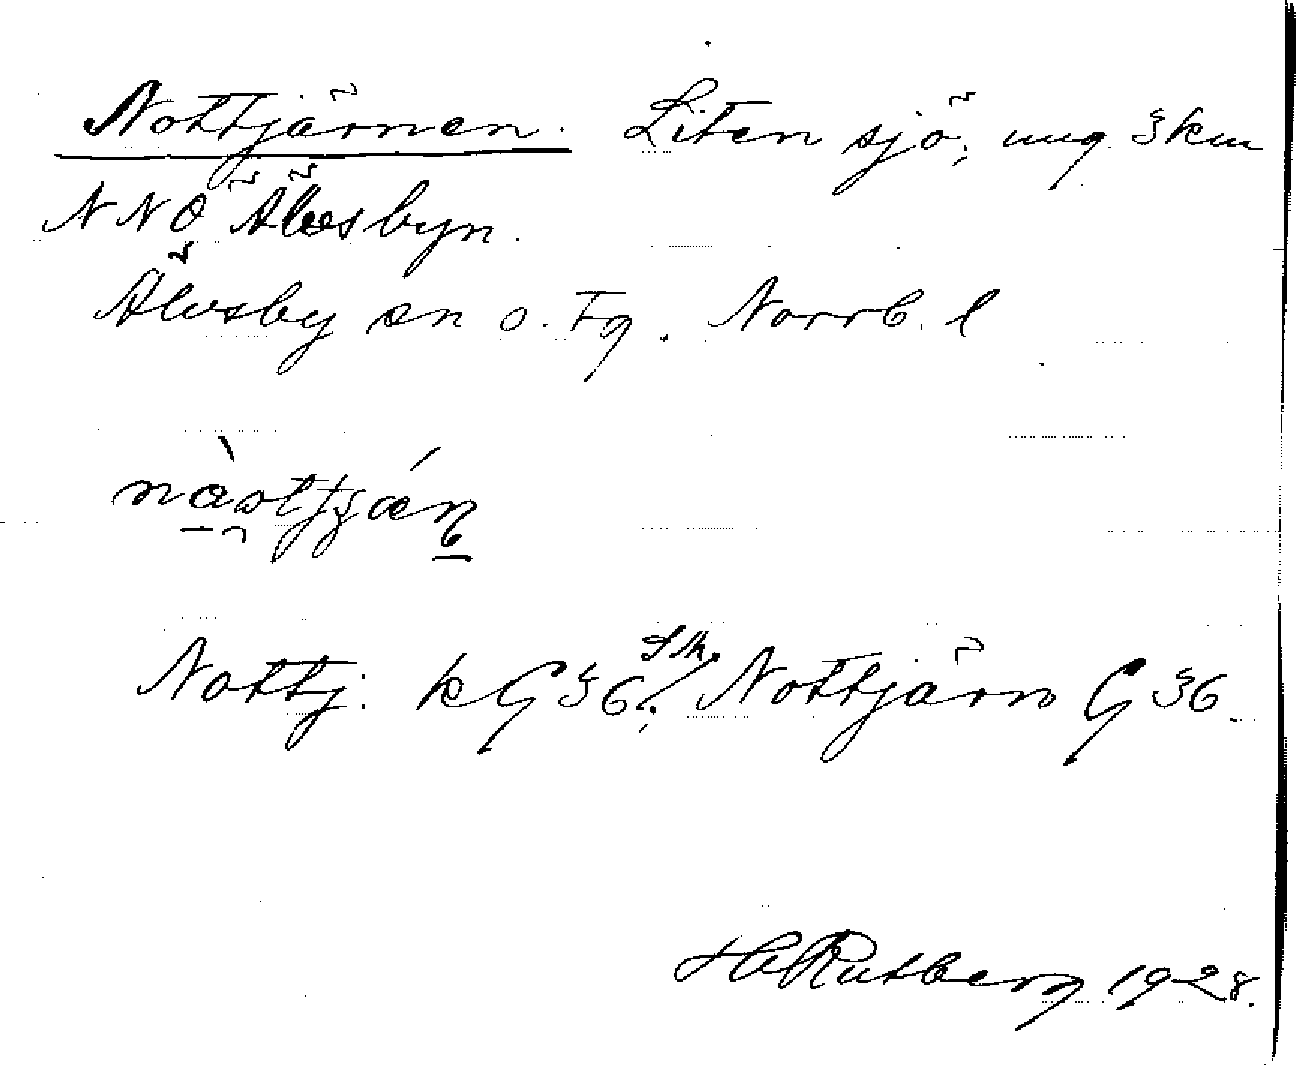 Nottjärnen. Liten sjö, ung. 3 km
NNÖ Älvsbyn.
Älvsby sn o. tg. Norrb. l
Nottj: k G 36; Sk. Nottjärn G 36.
H Rutberg 1928.